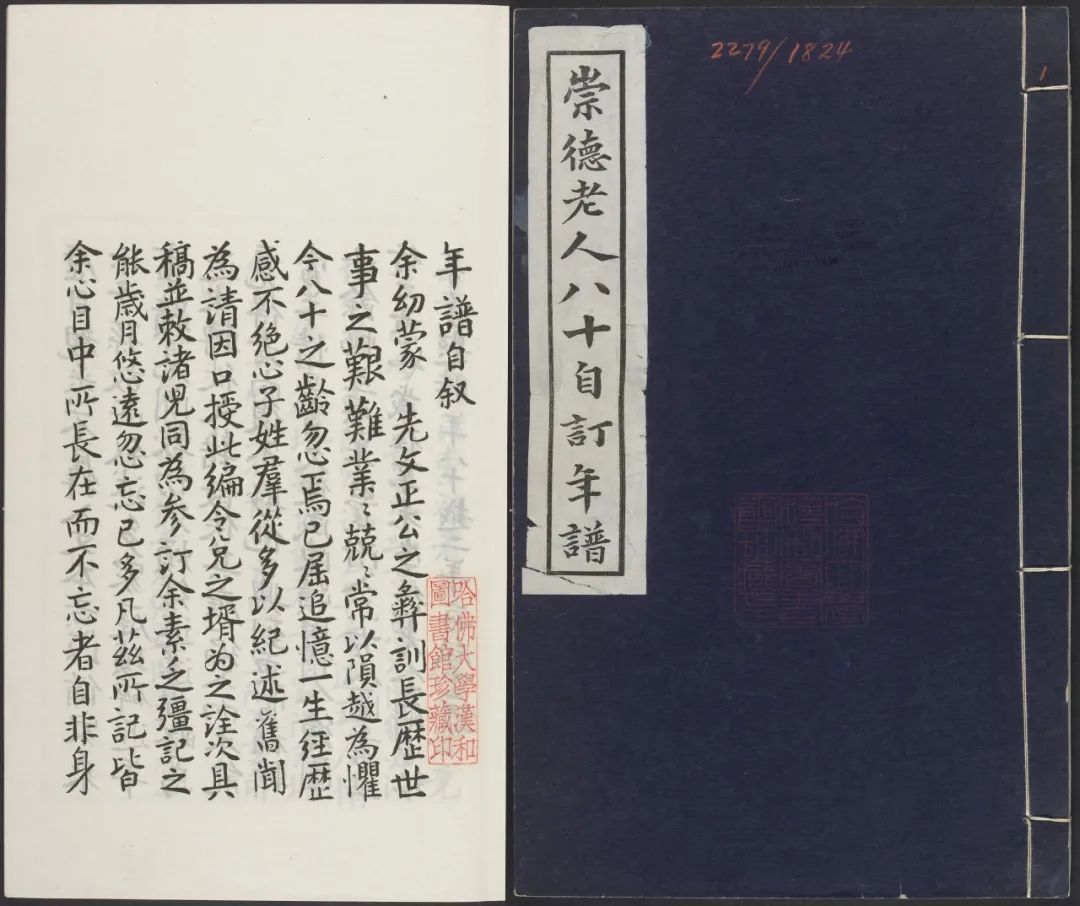 2279/1824
1
崇德老人八十自訂年譜
年譜自叙
余幼蒙 先文正公之彝訓長歴世
事之艱難業〻兢〻常以隕越為懼
今八十之齡忽焉已屆追憶一生經歴
感不絕心子姓羣從多以紀述舊聞
為請因口授此編令兄之壻为之詮次具
稿並敕諸兒同為参訂余素乏彊記之
能歲月悠遠忽忘已多凡茲所記皆
余心目中所長在而不忘者自非身
哈佛大學漢和
圖書館珍藏印